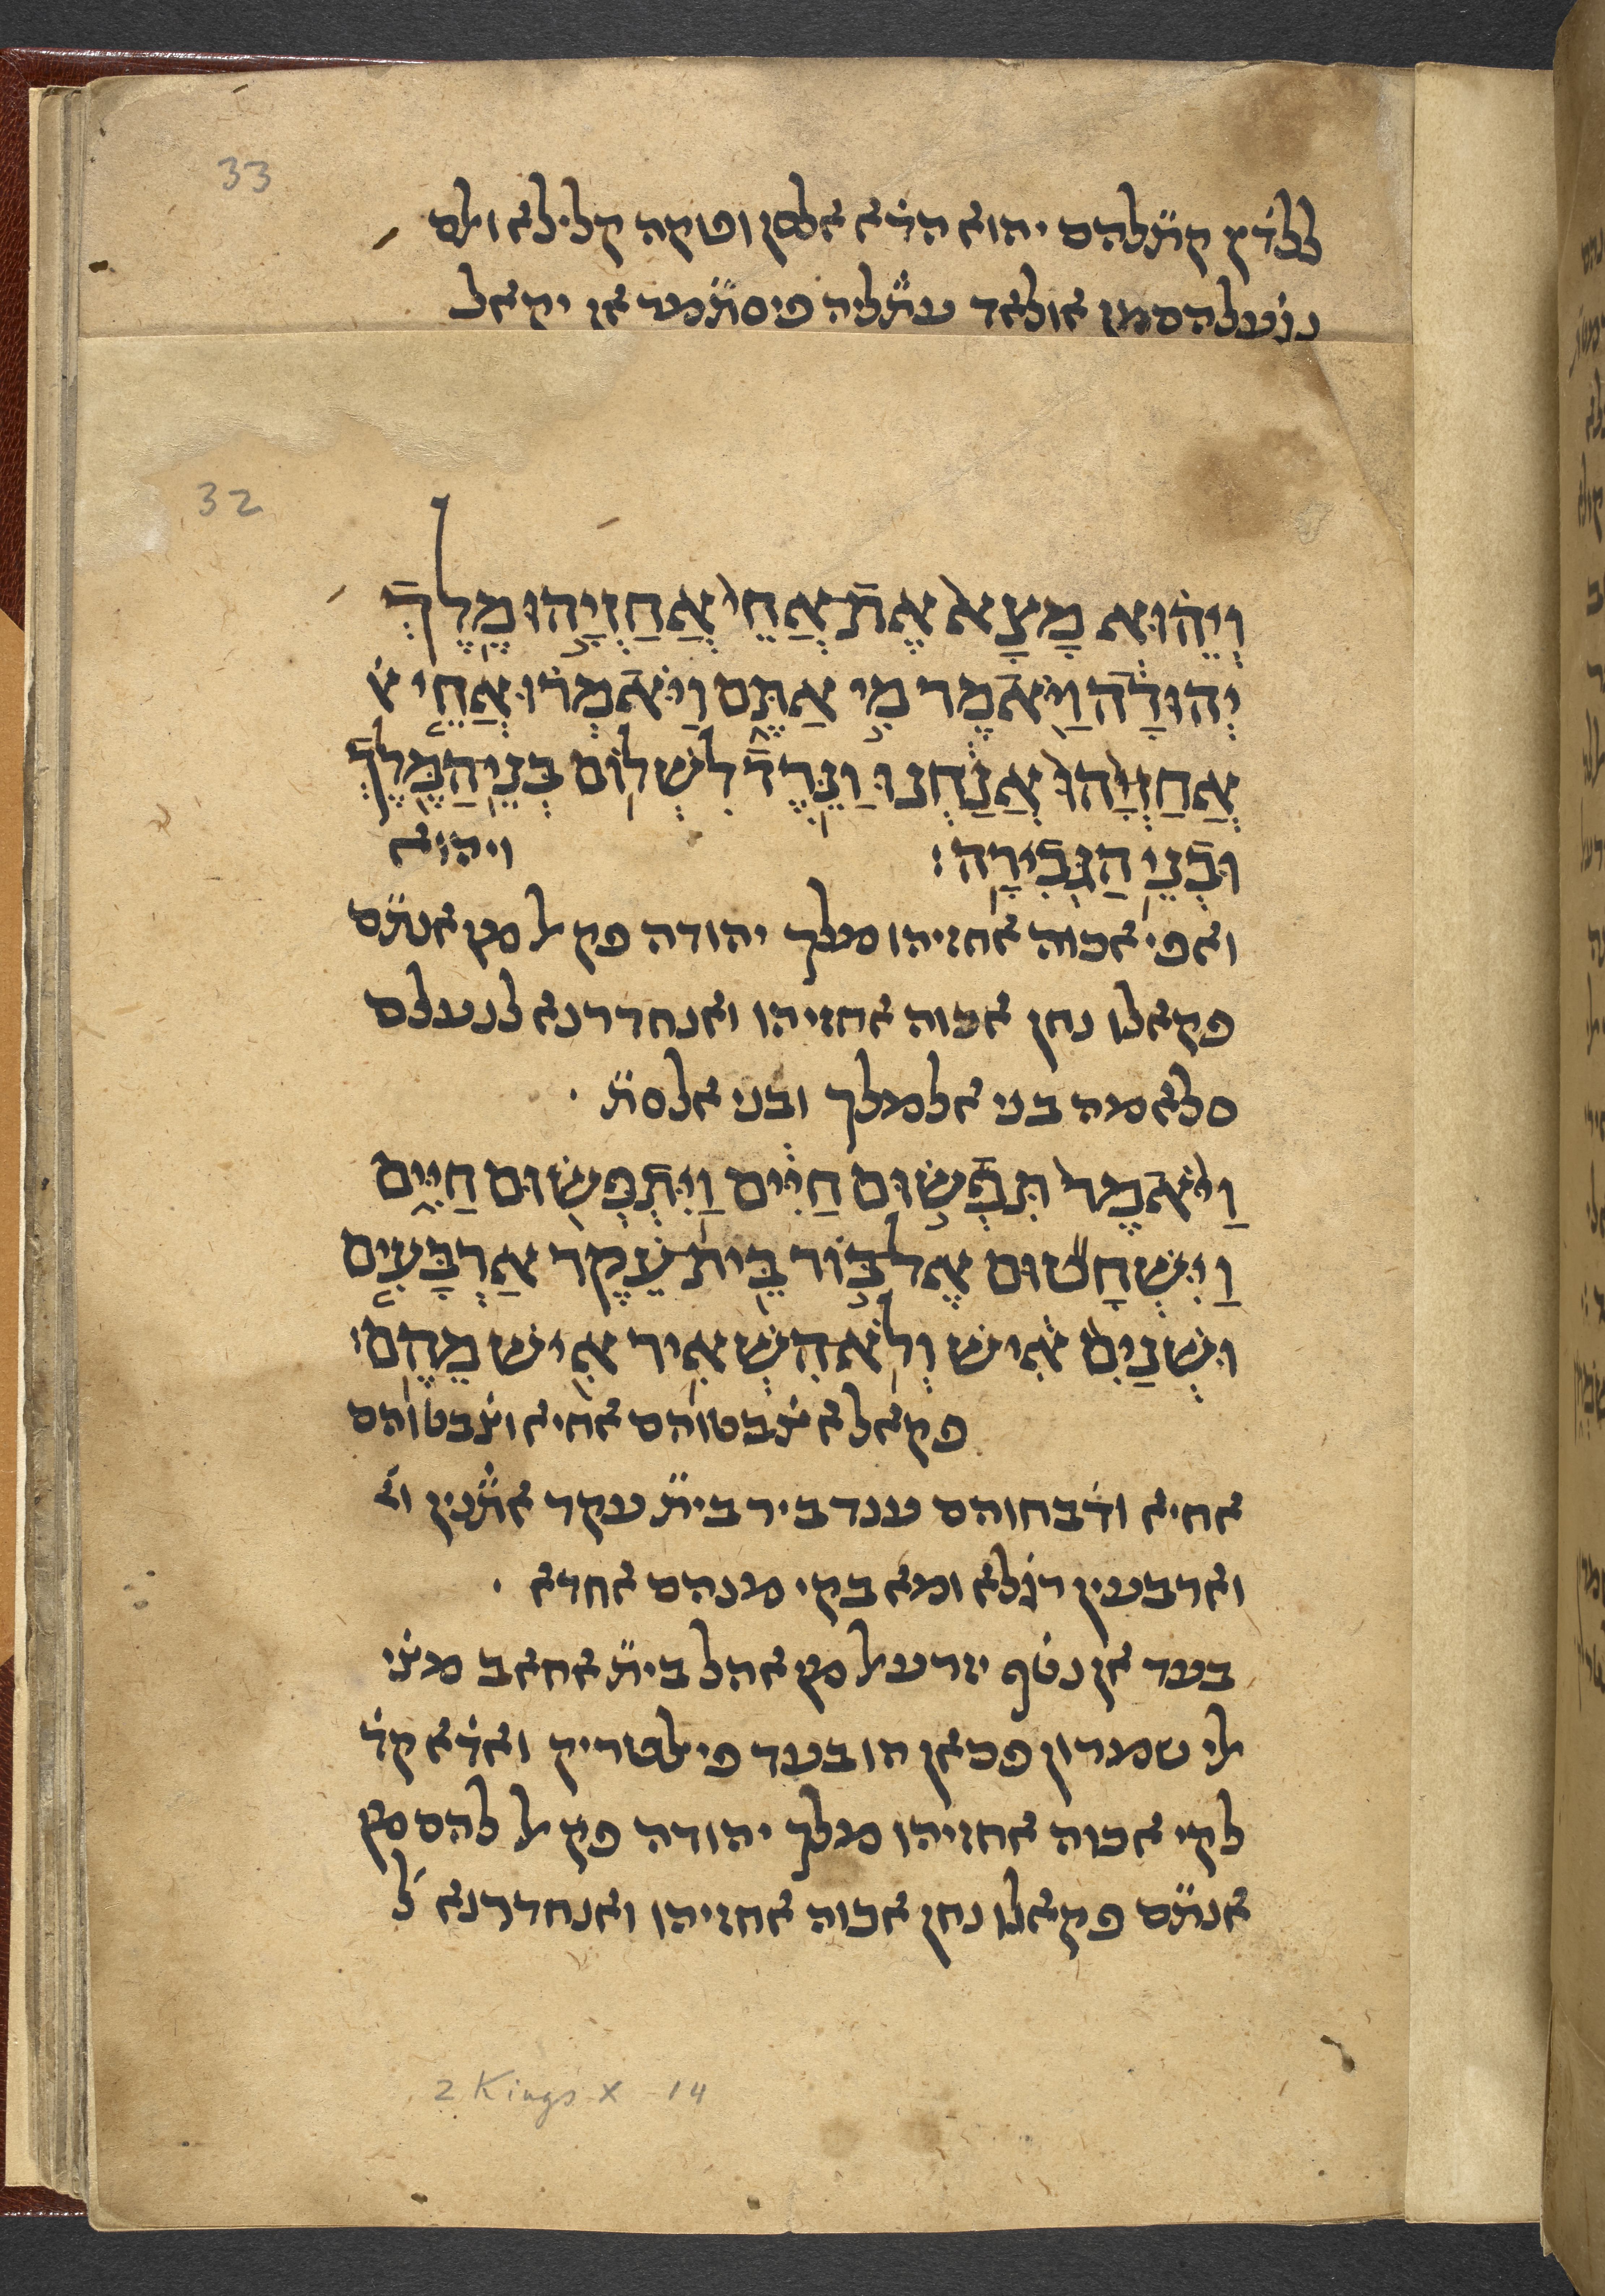 33
ללדׄין קתׄלהם יהוא הדׄא אלסן וטקה קלילא ולם
נגׄעלהם מן אולאד עתׄליה פיסתׄמר אן יקאל
32
וְיֵה֗וּא מָצָא֙ אֶת־אֲחֵי֙ אֲחַזְיָ֣הוּ מֶֽלֶךְ־
יְהוּדָ֔ה וַיֹּ֖אמֶר מִ֣י אַתֶּ֑ם וַיֹּאמְר֗וּ אֲחֵ֤י א
אֲחַזְיָ֙הוּ֙ אֲנַ֔חְנוּ וַנֵּ֛רֶד לִשְׁל֥וֹם בְּנֵֽי־הַמֶּ֖לֶךְ
וּבְנֵ֥י הַגְּבִירָֽה׃ ויהוא
ואפי אכוה אחזיהו מלך יהודה פקאל מן אנתׄם
פקאלו נחן אכוה אחזיהו ואנחדרנא לנעלם
סלאמה בני אלמלך ובני אלסתׄ ·
וַיֹּ֙אמֶר֙ תִּפְשׂ֣וּם חַיִּ֔ים וַֽיִּתְפְּשׂ֖וּם חַיִּ֑ים
וַֽיִּשְׁחָט֞וּם אֶל־בּ֣וֹר בֵּֽית־עֵ֗קֶד אַרְבָּעִ֤ים
וּשְׁנַ֙יִם֙ אִ֔ישׁ וְלֹֽא־הִשְׁאִ֥יר אִ֖ישׁ מֵהֶֽם׃
פקאל אצׄבטוהם אחיא וצׄבטוהם
אחיא ודׄבחוהם ענד ביר ביתׄ עקד אתׄנין וא
וארבעין רגׄלא ומא בקי מנהם אחדא ·
בעד אן נטׄף יזרעאל מן אהל ביתׄ אחאב מצׄי
אלי שמרון פכאן הו בעד פי אלטריק ואדׄא קד
לקי אכוה אחזיהו מלך יהודה פקאל להם מן
אנתׄם פקאלו נחן אכוה אחזיהו ואנחדרנא ל
2 Kings X 14